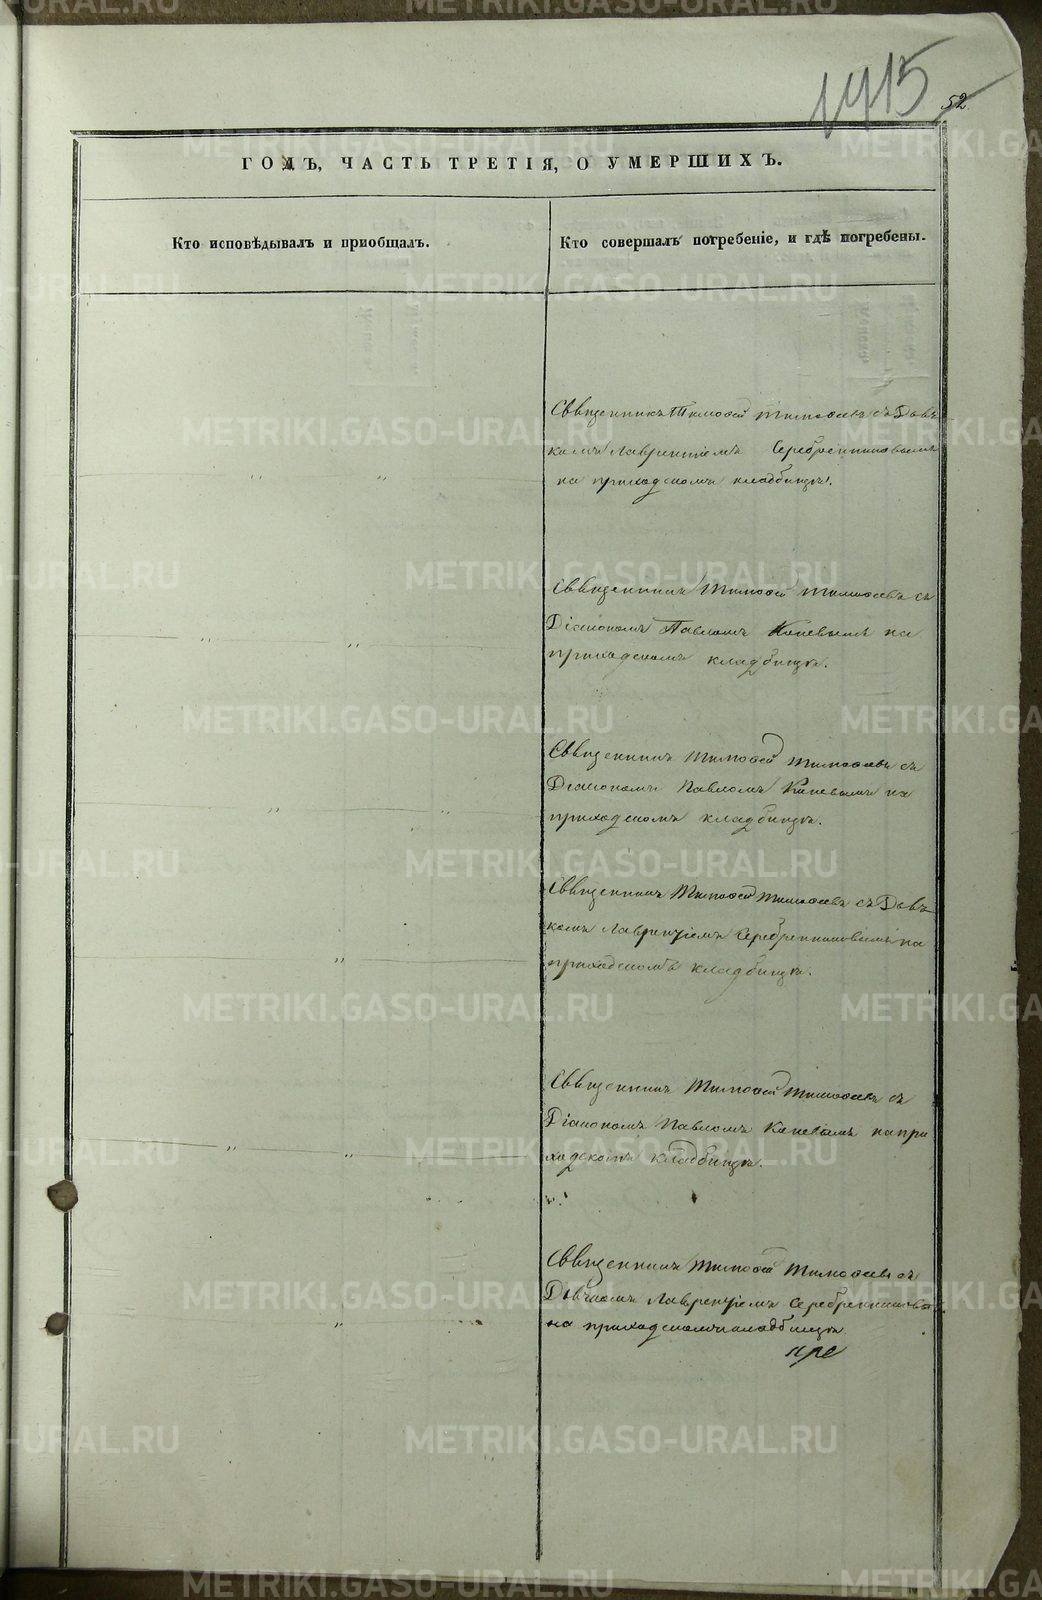 1415
52
ГОДЪ, ЧАСТЬ ТРЕТІЯ, О УМЕРШИХЪ.
Кто исповѣдывалъ и пріобщалъ.
Кто совершалъ погребеніе, и гдѣ погребены.
Священникъ Тимофей Тимофеевъ съ Дьяч
комъ Лаврентіемъ Серебренниковымъ
на приходскомъ кладбищѣ.
Священникъ Тимофей Тимофеевъ съ
Діакономъ Павломъ Каневымъ на
приходскомъ кладбищѣ.
Священникъ Тимофей Тимофеевъ съ
Діакономъ Павломъ Каневымъ на
приходскомъ кладбищѣ.
Священникъ Тимофей Тимофеевъ съ Дьяч
комъ Лаврентіемъ Серебренниковымъ на
приходскомъ кладбищѣ.
Священникъ Тимофей Тимофеевъ съ
Діакономъ Павломъ Каневымъ на при
ходскомъ кладбищѣ.
Священникъ Тимофей Тимофеевъ съ
Дьячкомъ Лаврентіемъ Серебренниковы
на приходскомъ кладбищѣ
METRIKI.GASO-URAL.RU